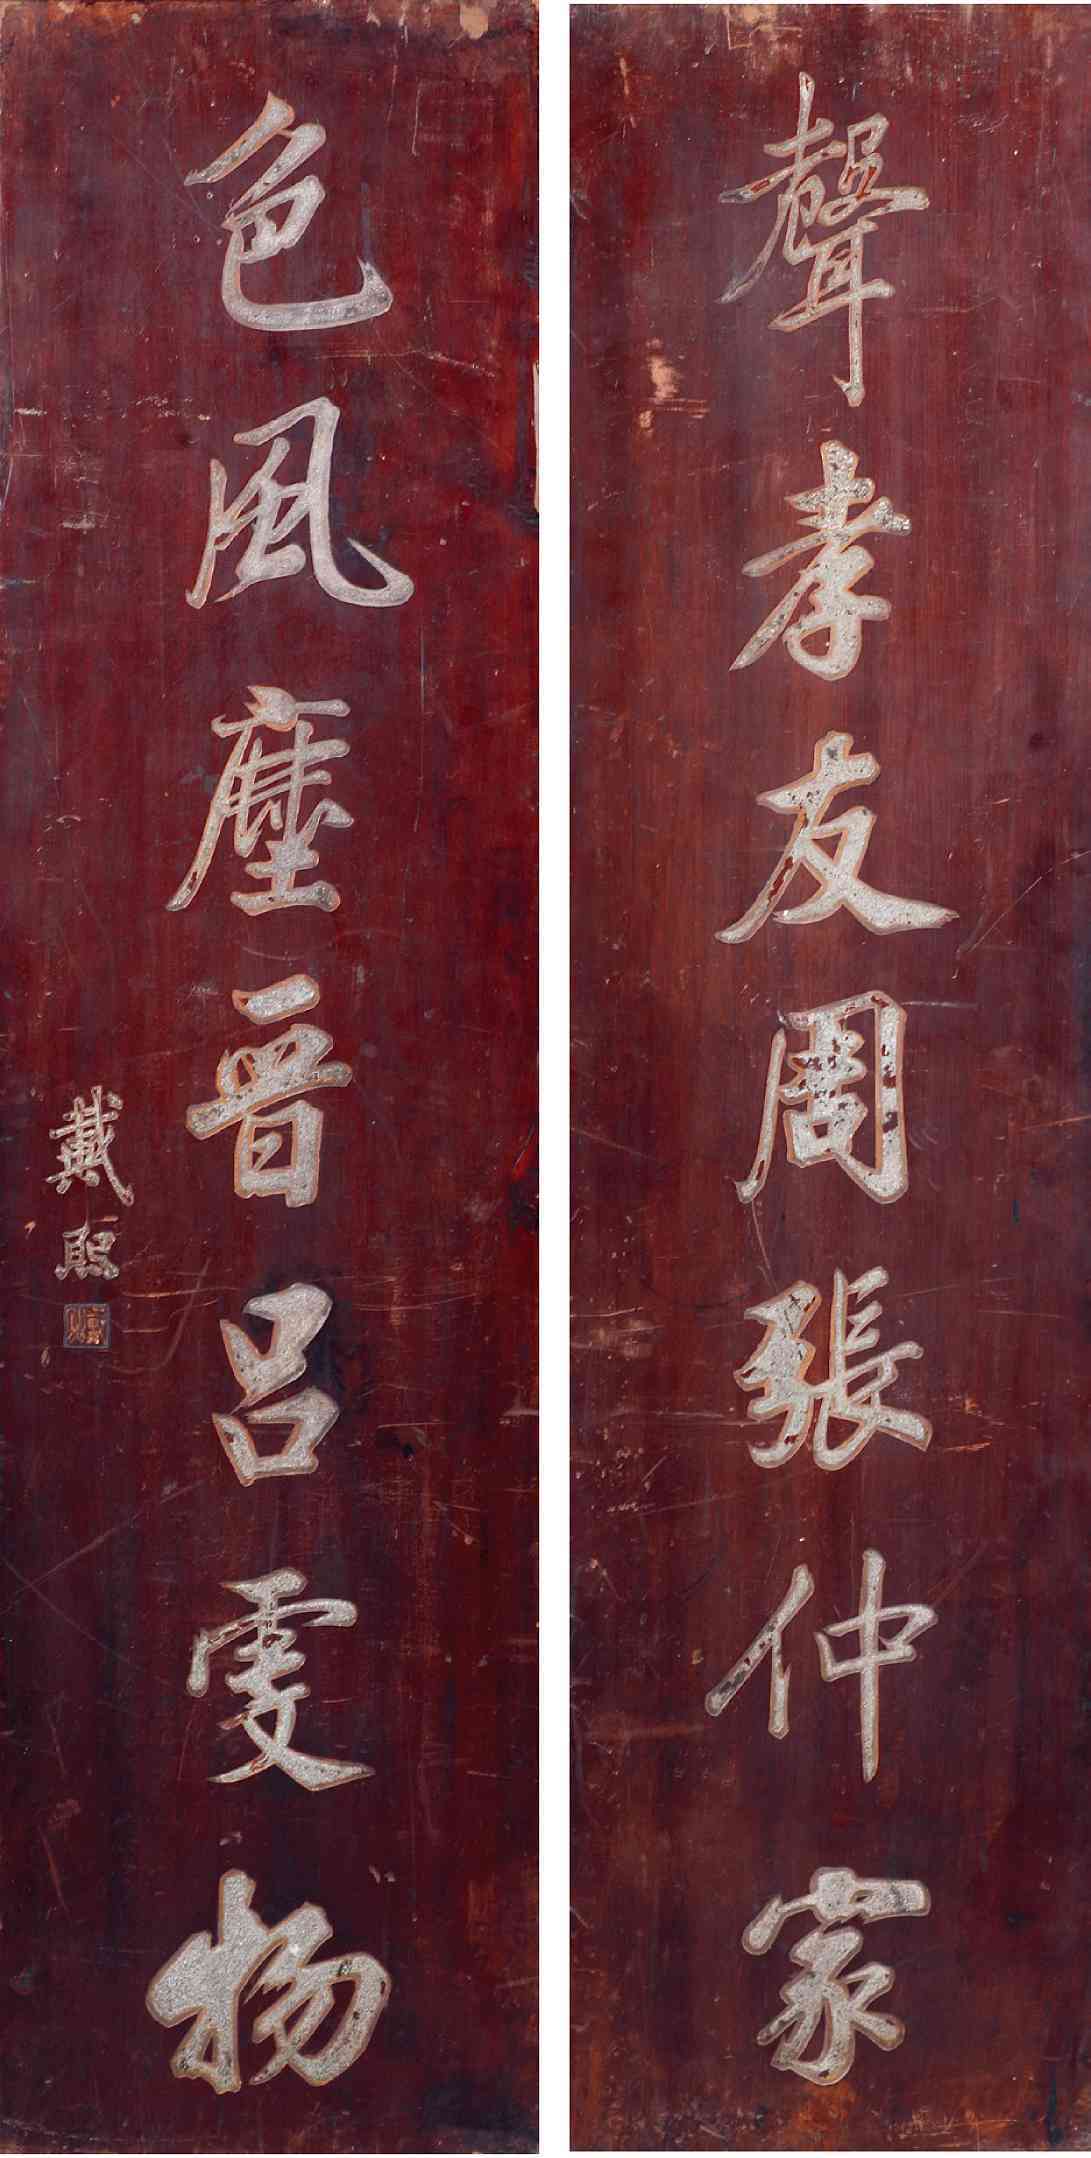 聲孝友周張仲家
色風塵晉呂虔物
戴熙